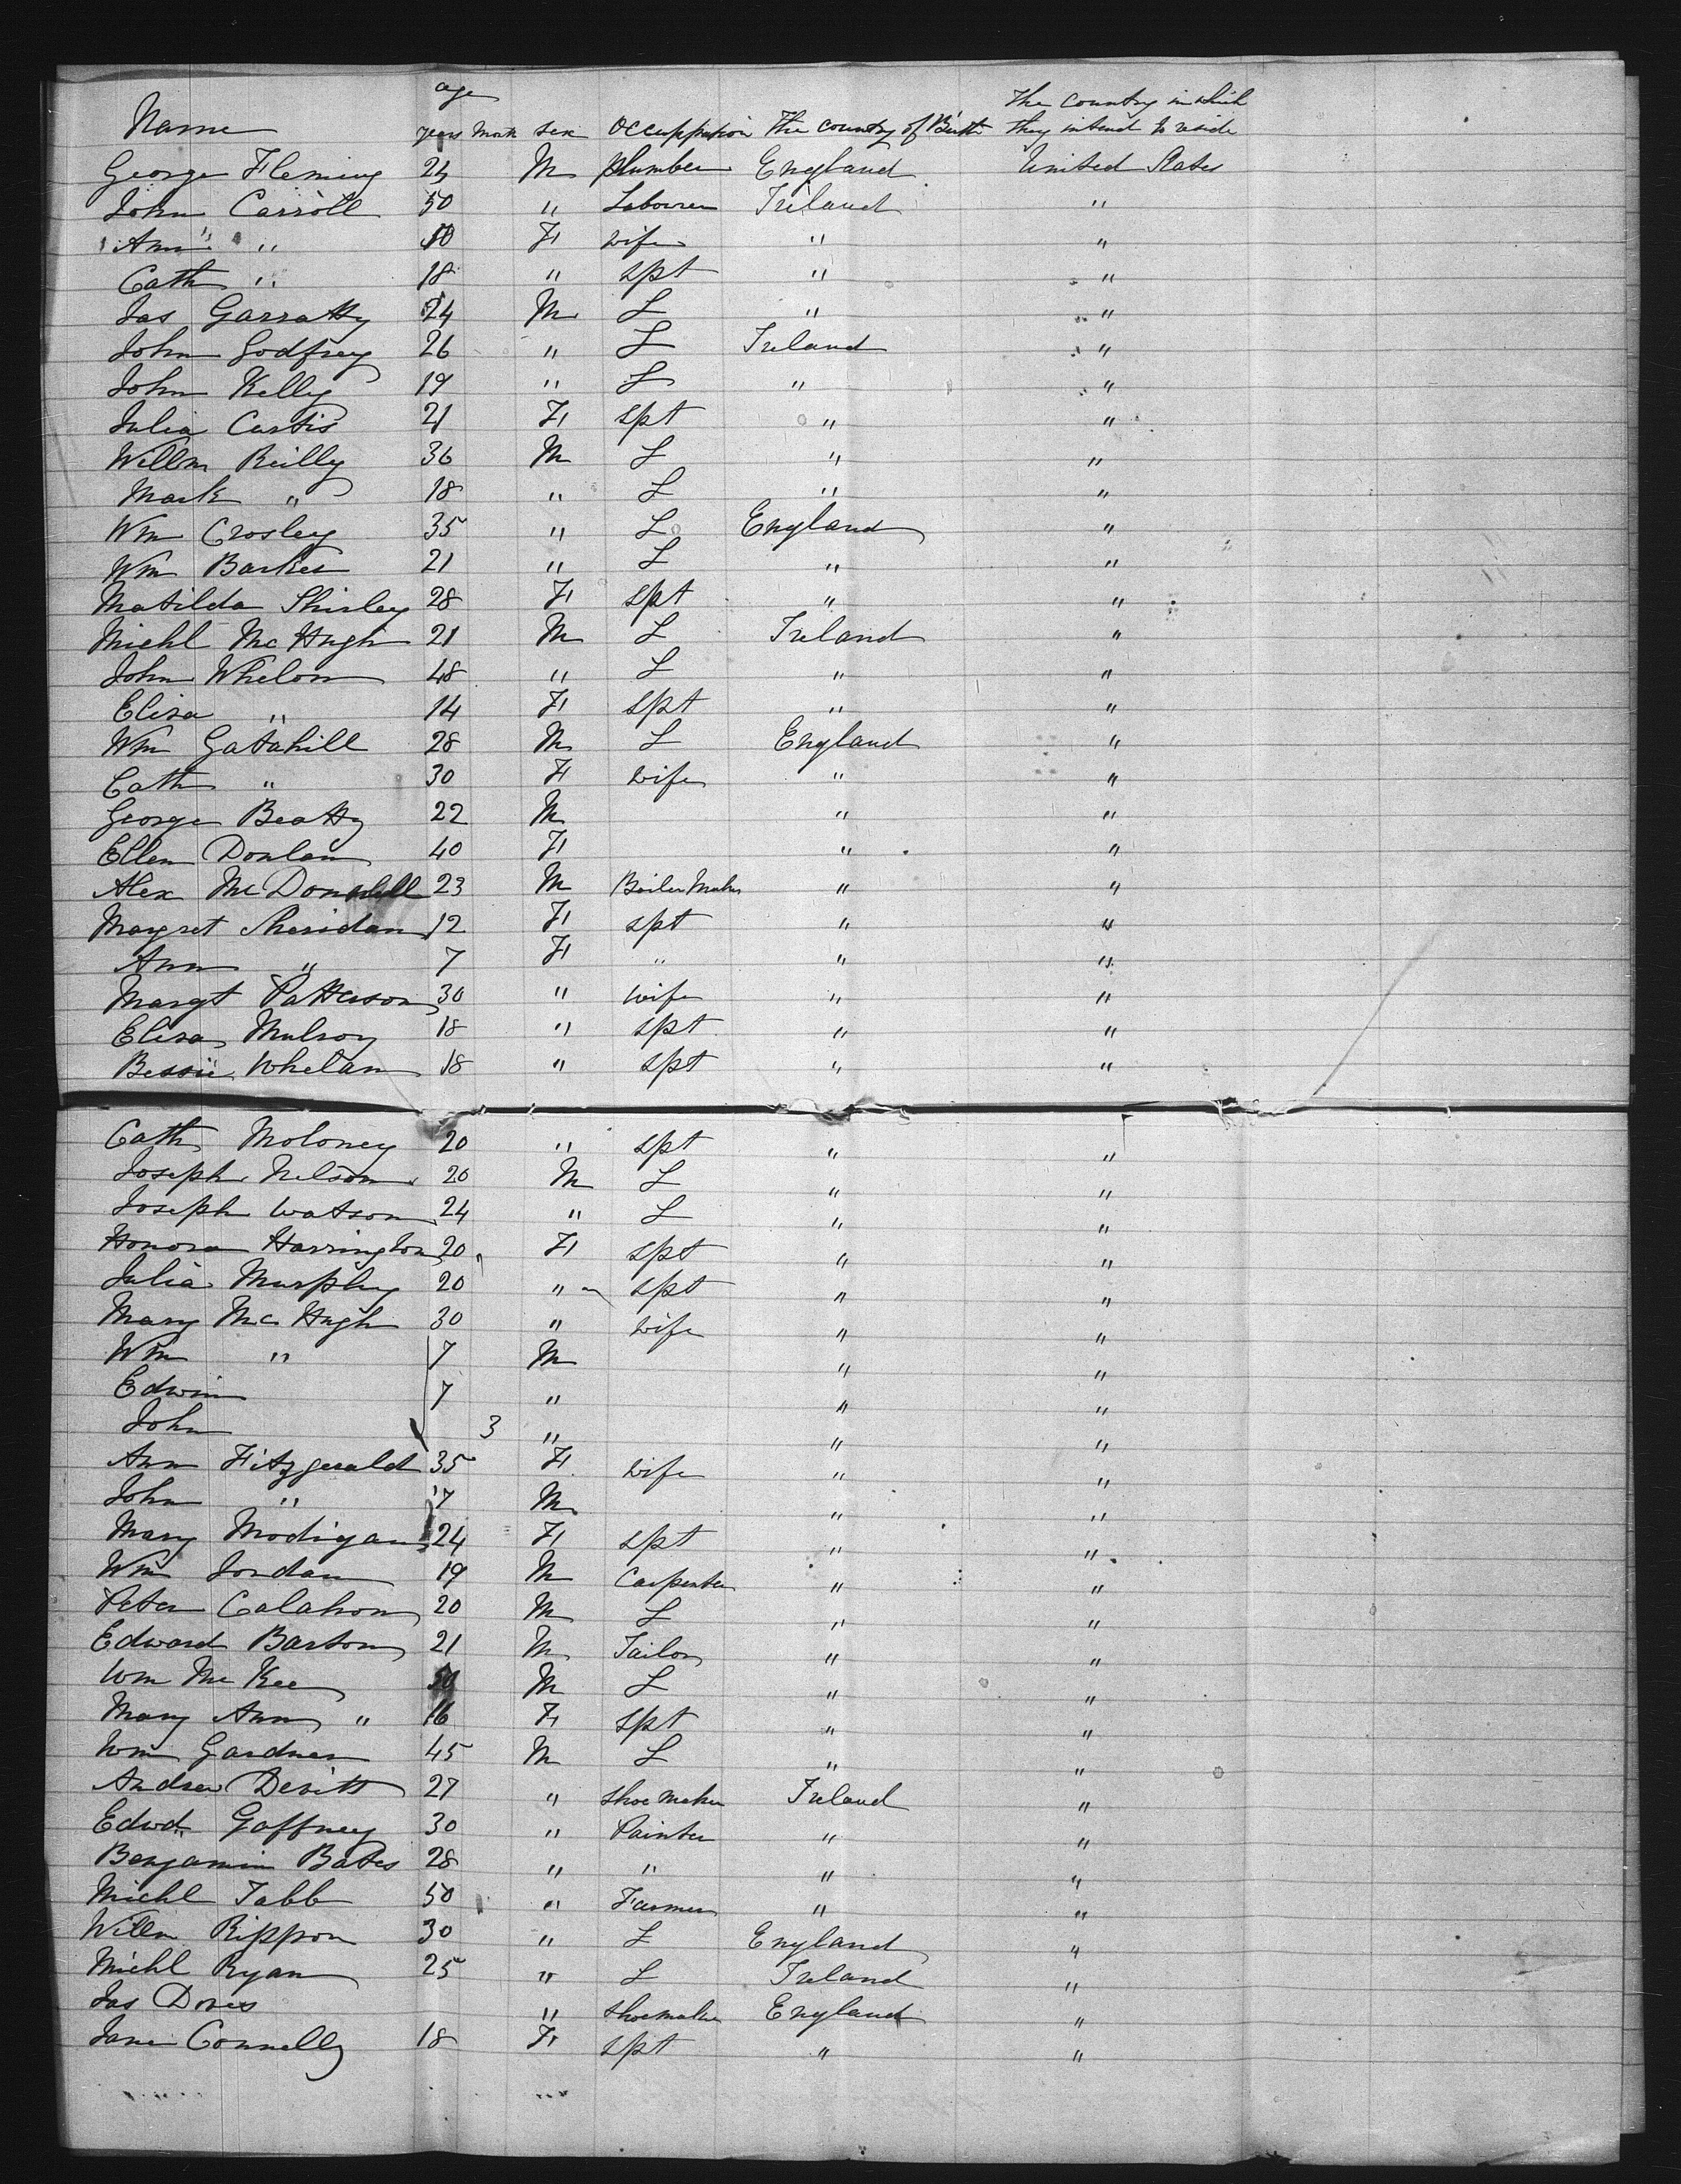 age The country in which
Name years Month sex Occuppation The country of Birth they intend to reside
George Fleming 24 M plumber England United States
John Carroll 50 " Labourer Ireland "
Ann " 50 F wife " "
Cath " 18 " spt " "
Jas Garratty 24 M L " "
John Godfrey 26 " L Ireland "
John Kelly 19 " L " "
Julia Curtis 21 F spt " "
Willm Reilly 36 M L " "
Mark " 18 " L " "
Wm Crosley 35 " L England "
Wm Barker 21 " L " "
Matilda Shirley 28 F spt " "
Michl Mc Hugh 21 M L Ireland "
John Whelon 48 " L " "
Eliza " 14 F spt " "
Wm Gatahill 28 M L England "
Cath " 30 F wife " "
George Beatty 22 M " "
Ellen Donlan 40 F " "
Alex McDonnell 23 M Boiler Maker " "
Margret Sheridan 12 F spt " "
Ann " 7 F " " "
Margt Patterson 30 " wife " "
Eliza Mulroy 18 " spt " "
Bessie Whelan 18 " spt " "
Cath Moloney 20 " spt " "
Joseph Nelson 20 M L " "
Joseph Watson 24 " L " "
Honora Harrington 20 F spt " "
Julia Murphy 20 " spt " "
Mary Mc Hugh 30 " wife " "
Wm " 7 M " "
Edwin 7 " " "
John 3 " " "
Ann Fitzgerald 35 F wife " "
John " 7 M " "
Mary Modigan 24 F spt " "
Wm Jordan 19 M Carpenter " "
Peter Calahon 20 M L " "
Edward Barton 21 M Tailor " "
Wm McKee 50 M L " "
Mary Ann " 16 F spt " "
Wm Gardner 45 M L " "
Andrew Devitt 27 " Shoe Maker Ireland "
Edwd Gaffney 30 " Painter " "
Benjamin Bates 28 " " " "
Michl Tabb 50 " Farmer " "
Willm Rippon 30 " L England "
Michl Ryan 25 " L Ireland "
Jas Dores " Shoemaker England "
Jane Connelly 18 F spt " "